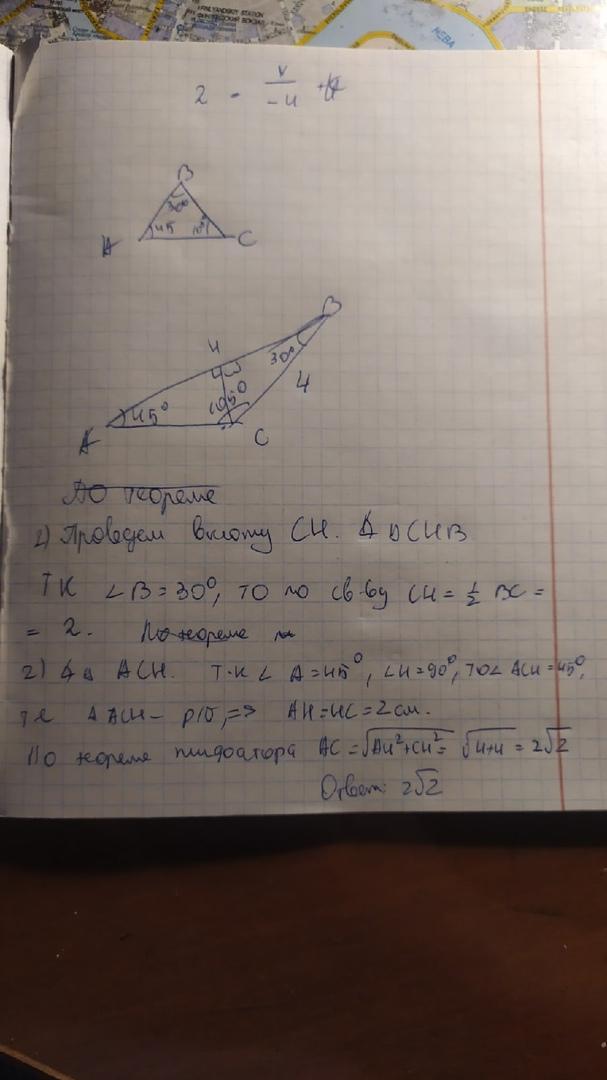 НЕВА
2 - v/-4
B
30°
45
A
C
B
H
30°
4
105°
45°
A
C
По теореме
1) Проведем высоту CH. ΔCHB
Т.К ∠B = 30°, то по св-ву CH = 1/2 BC =
= 2. По теореме
2) ACH. Т.К ∠A = 45°, ∠H = 90°, то ∠ACH = 45°,
т.е ΔACH - р/б, => AH = HC = 2 см.
По теореме пифагора AC = √AH²+CH² = √4+4 = 2√2
Ответ: 2√2